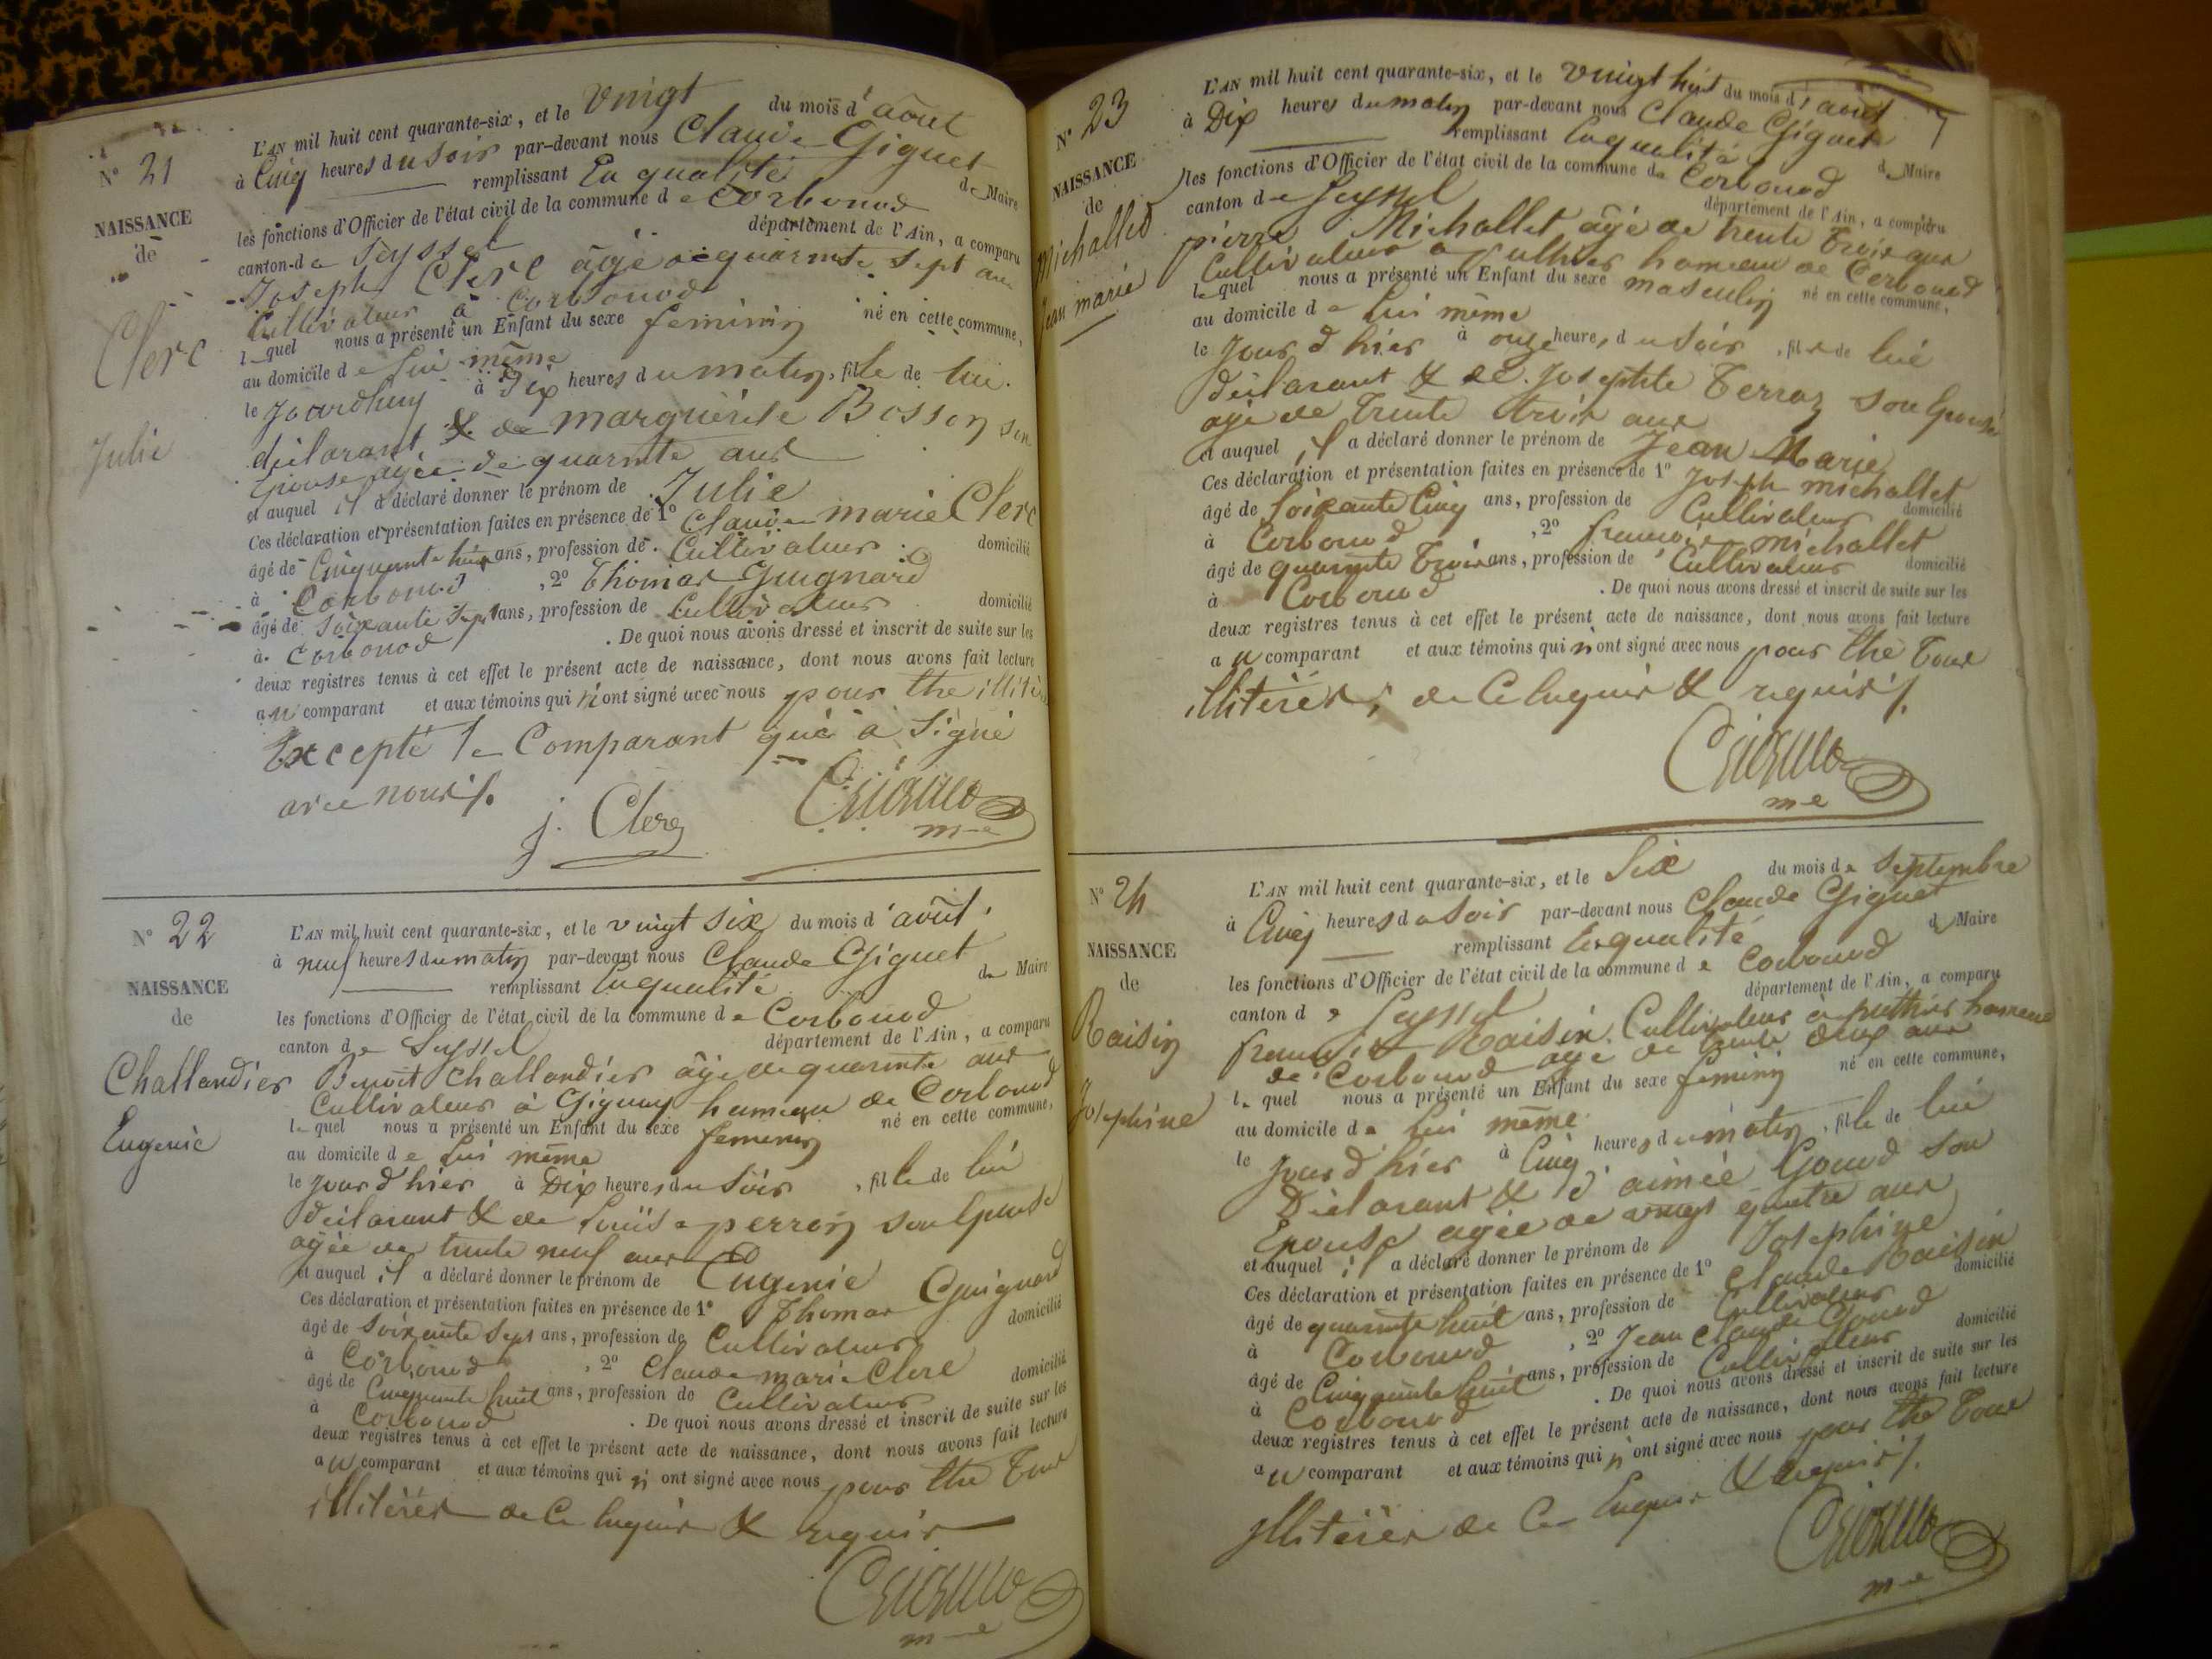 N° 21
NAISSANCE
de
Clerc
Julie
L'AN mil huit cent quarante-six, et le vingt du mois d'août
à Cinq heures du Soir par-devant nous Claude Giguet
remplissant En qualité de Maire
les fonctions d'Officier de l'état civil de la commune de Corbonod
canton de Seyssel département de l'Ain, a comparu
Joseph Clerc âgé de quarante sept ans
Cultivateur à Corbonod
lequel nous a présenté un Enfant du sexe feminin né en cette commune,
au domicile de lui même
le Jourdhuy à Dix heures du matin, fille de lui
déclarant & de marguerite Bosson son
Epouse agée de quarante ans
et auquel il a déclaré donner le prénom de Julie
Ces déclaration et présentation faites en présence de 1° Claude marie Clerc
âgé de Cinquante huit ans, profession de Cultivateur domicilié
à Corbonod, 2° Thomas Guignard
âgé de Soixante Sept ans, profession de Cultivateur domicilié
à Corbonod. De quoi nous avons dressé et inscrit de suite sur les
deux registres tenus à cet effet le présent acte de naissance, dont nous avons fait lecture
au comparant et aux témoins qui n'ont signé avec nous pour être
Excepté le Comparant qui a Signé
avec nous
j. Clerc
me
N° 22
NAISSANCE
de
Challandier
Eugenie
L'AN mil huit cent quarante-six, et le vingt six du mois d'août
à neuf heures du matin par-devant nous Claude Giguet
remplissant En qualité de Maire
les fonctions d'Officier de l'état civil de la commune de Corbonod
canton de Seyssel département de l'Ain, a comparu
Benoit Challandier âgé de quarante ans
Cultivateur à Gignay hameau de Corbonod
lequel nous a présenté un Enfant du sexe feminin né en cette commune,
au domicile de lui même
le Jour d'hier à Dix heures du Soir, fille de lui
déclarant & de Louise perron son Epouse
agée de trente neuf ans
et auquel il a déclaré donner le prénom de Eugenie
Ces déclaration et présentation faites en présence de 1° Thomas Guignard
âgé de Soixante Sept ans, profession de Cultivateur domicilié
à Corbonod, 2° Claude marie Clerc
âgé de Cinquante huit ans, profession de Cultivateur domicilié
à Corbonod. De quoi nous avons dressé et inscrit de suite sur les
deux registres tenus à cet effet le présent acte de naissance, dont nous avons fait lecture
au comparant et aux témoins qui n'ont signé avec nous pour être Tous
illitérés de Ce Enquis & requis
me
N° 23
NAISSANCE
de
Michallet
Jean marie
L'AN mil huit cent quarante-six, et le vingt huit du mois d'août
à Dix heures du matin par-devant nous Claude Giguet
remplissant En qualité de Maire
les fonctions d'Officier de l'état civil de la commune de Corbonod
canton de Seyssel département de l'Ain, a comparu
pierre Michallet âgé de trente Trois ans
Cultivateur à puthier hameau de Corbonod
lequel nous a présenté un Enfant du sexe masculin né en cette commune,
au domicile de lui même
le Jour d'hier à onze heures du Soir, fils de lui
déclarant & de Josephte Terraz son Epouse
agée de Trente trois ans
et auquel il a déclaré donner le prénom de Jean Marie
Ces déclaration et présentation faites en présence de 1° Joseph michallet
âgé de Soixante Cinq ans, profession de Cultivateur domicilié
à Corbonod, 2° francois michallet
âgé de quarante Trois ans, profession de Cultivateur domicilié
à Corbonod. De quoi nous avons dressé et inscrit de suite sur les
deux registres tenus à cet effet le présent acte de naissance, dont nous avons fait lecture
au comparant et aux témoins qui n'ont signé avec nous pour être Tous
illitérés, de Ce Enquis & requis
me
N° 24
NAISSANCE
de
Raisin
Josephine
L'AN mil huit cent quarante-six, et le Six du mois de Septembre
à Cinq heures du Soir par-devant nous Claude Giguet
remplissant En qualité de Maire
les fonctions d'Officier de l'état civil de la commune de Corbonod
canton de Seyssel département de l'Ain, a comparu
francois Raisin Cultivateur à puthier hameau
de Corbonod agé de trente deux ans
lequel nous a présenté un Enfant du sexe feminin né en cette commune,
au domicile de lui même
le Jour d'hier à Cinq heures du matin, fille de lui
Déclarant & d'aimée Gonod son
Epouse agée de vingt quatre ans
et auquel il a déclaré donner le prénom de Josephine
Ces déclaration et présentation faites en présence de 1° Claude Raisin
âgé de quarante huit ans, profession de Cultivateur domicilié
à Corbonod, 2° Jean Claude Gonod
âgé de Cinquante huit ans, profession de Cultivateur domicilié
à Corbonod. De quoi nous avons dressé et inscrit de suite sur les
deux registres tenus à cet effet le présent acte de naissance, dont nous avons fait lecture
au comparant et aux témoins qui n'ont signé avec nous pour être Tous
illitérés de Ce Enquis & requis
me